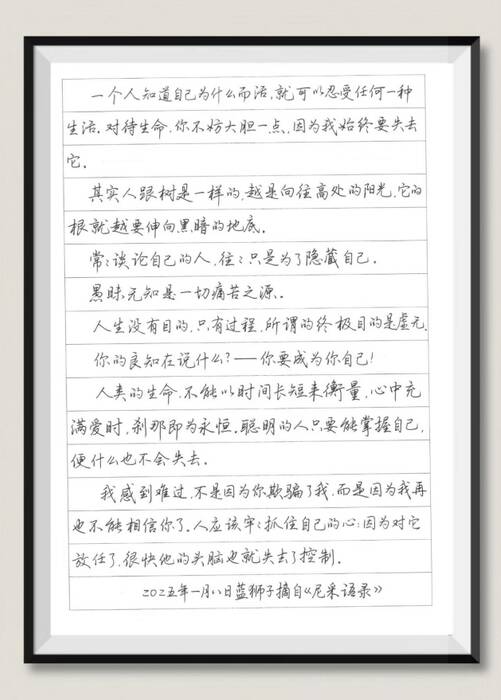 一个人知道自己为什么而活，就可以忍受任何一种
生活。对待生命，你不妨大胆一点，因为我始终要失去
它。
其实人跟树是一样的，越是向往高处的阳光，它的
根就越要伸向黑暗的地底。
常〻谈论自己的人，往〻只是为了隐藏自己。
愚昧无知是一切痛苦之源。
人生没有目的，只有过程，所谓的终极目的是虚无。
你的良知在说什么？——你要成为你自己！
人类的生命，不能以时间长短来衡量，心中充
满爱时，刹那即为永恒。聪明的人只要能掌握自己，
便什么也不会失去。
我感到难过，不是因为你欺骗了我，而是因为我再
也不能相信你了。人应该牢〻抓住自己的心；因为对它
放任了，很快他的头脑也就失去了控制。
202五年一月八日蓝狮子摘自《尼采语录》